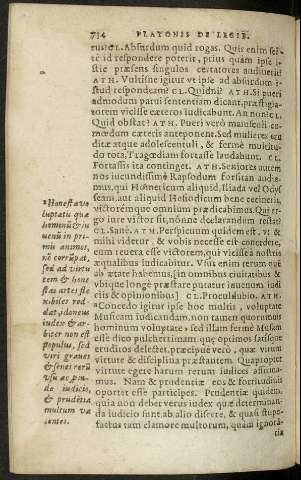 734 PLATONIS DE LEGIB.
rus. CL. Absurdum quid rogas. Quis enim sciret
id respondere poterit, prius quàm ipse
istic præsens singulos certatores audiuerit?
ATH. Vultisne igitur vt ipse ad absurdum
istud respondeam? CL. Quidni? ATH. Si pueri
admodum parui sententiam dicant, præstigiatorem
vicisse cæteros iudicabunt. An non? CL.
Quid obstat? ATH. Pueri verò maiusculi comœdum
cæteris anteponent. Sed mulieres eruditæ
atque adolescentuli, & fermè multitudo
tota, Tragœdiam fortasse laudabunt. CL.
Fortassis ita continget. ATH. Seniores autem
nos iucundissimè Rapsodum forsitan audiemus,
qui Homericum aliquid, Iliada vel Odysseam,
aut aliquid Hesiodicum bene cecinerit,
victorémque omnium prædicabimus. Quis ergo
iure victor sit, nónne declarandum restat?
CL. Sanè. ATH. Perspicuum quidem est, vt &
mihi videtur, & vobis necesse est concedere,
eum reuera esse victorem, qui vicisse à nostris
æqualibus iudicabitur. Vsus enim rerum qui
ab ætate habemus, in omnibus ciuitatibus &
vbique longè præstare putatur iuuenum iudiciis
& opinionibus. CL. Proculdubio. ATH.
Concedo igitur ipse hoc multis, voluptate
Musicam iudicandam, non tamen quorumuis
hominum voluptate: sed illam fermè Musam
esse dico pulcherrimam, quę optimos satísque
eruditos delectet, præcipuè verò, quæ virum
virtute & disciplina præstantem. Quapropter
virtute egere harum rerum iudices affirmamus.
Nam & prudentiæ eos & fortitudinis
oportet esse participes. Prudentiæ quidem,
quia non debet verus iudex quæ determinanda
iudicio sunt, ab alio discere, & quasi stupefactus
tam clamore multorum, quàm ignorantia
Honesta voluptatis
quæ
hominũ & iuuenũ
in primis
animos,
nõ corrũpat,
sed ad virtutem
& honestas
artes flexibiles
reddat,
idoneus
iudex & arbiter
non est
populus, sed
viri graues
& senes rerũ
vsu ac pinde
iudicio,
& prudẽtia
multum valentes.